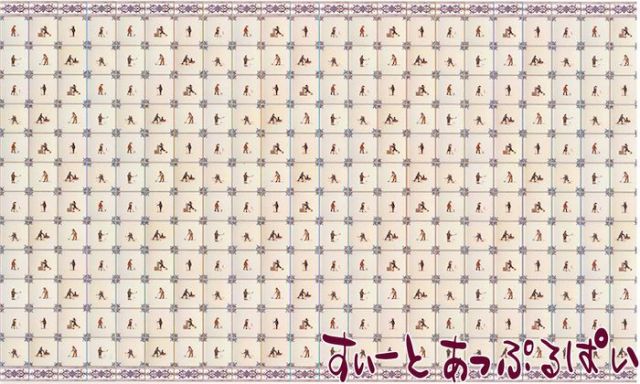 すぃーとあっぷるぱい